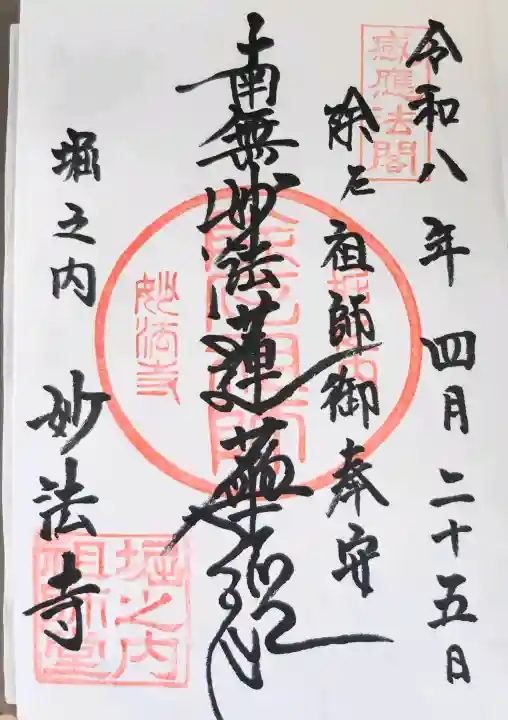 令和八年四月二十五日
感應法閣
除厄祖師御奉安
南無妙法蓮華経
妙法寺
堀之内
妙法寺
堀之内
祖師堂